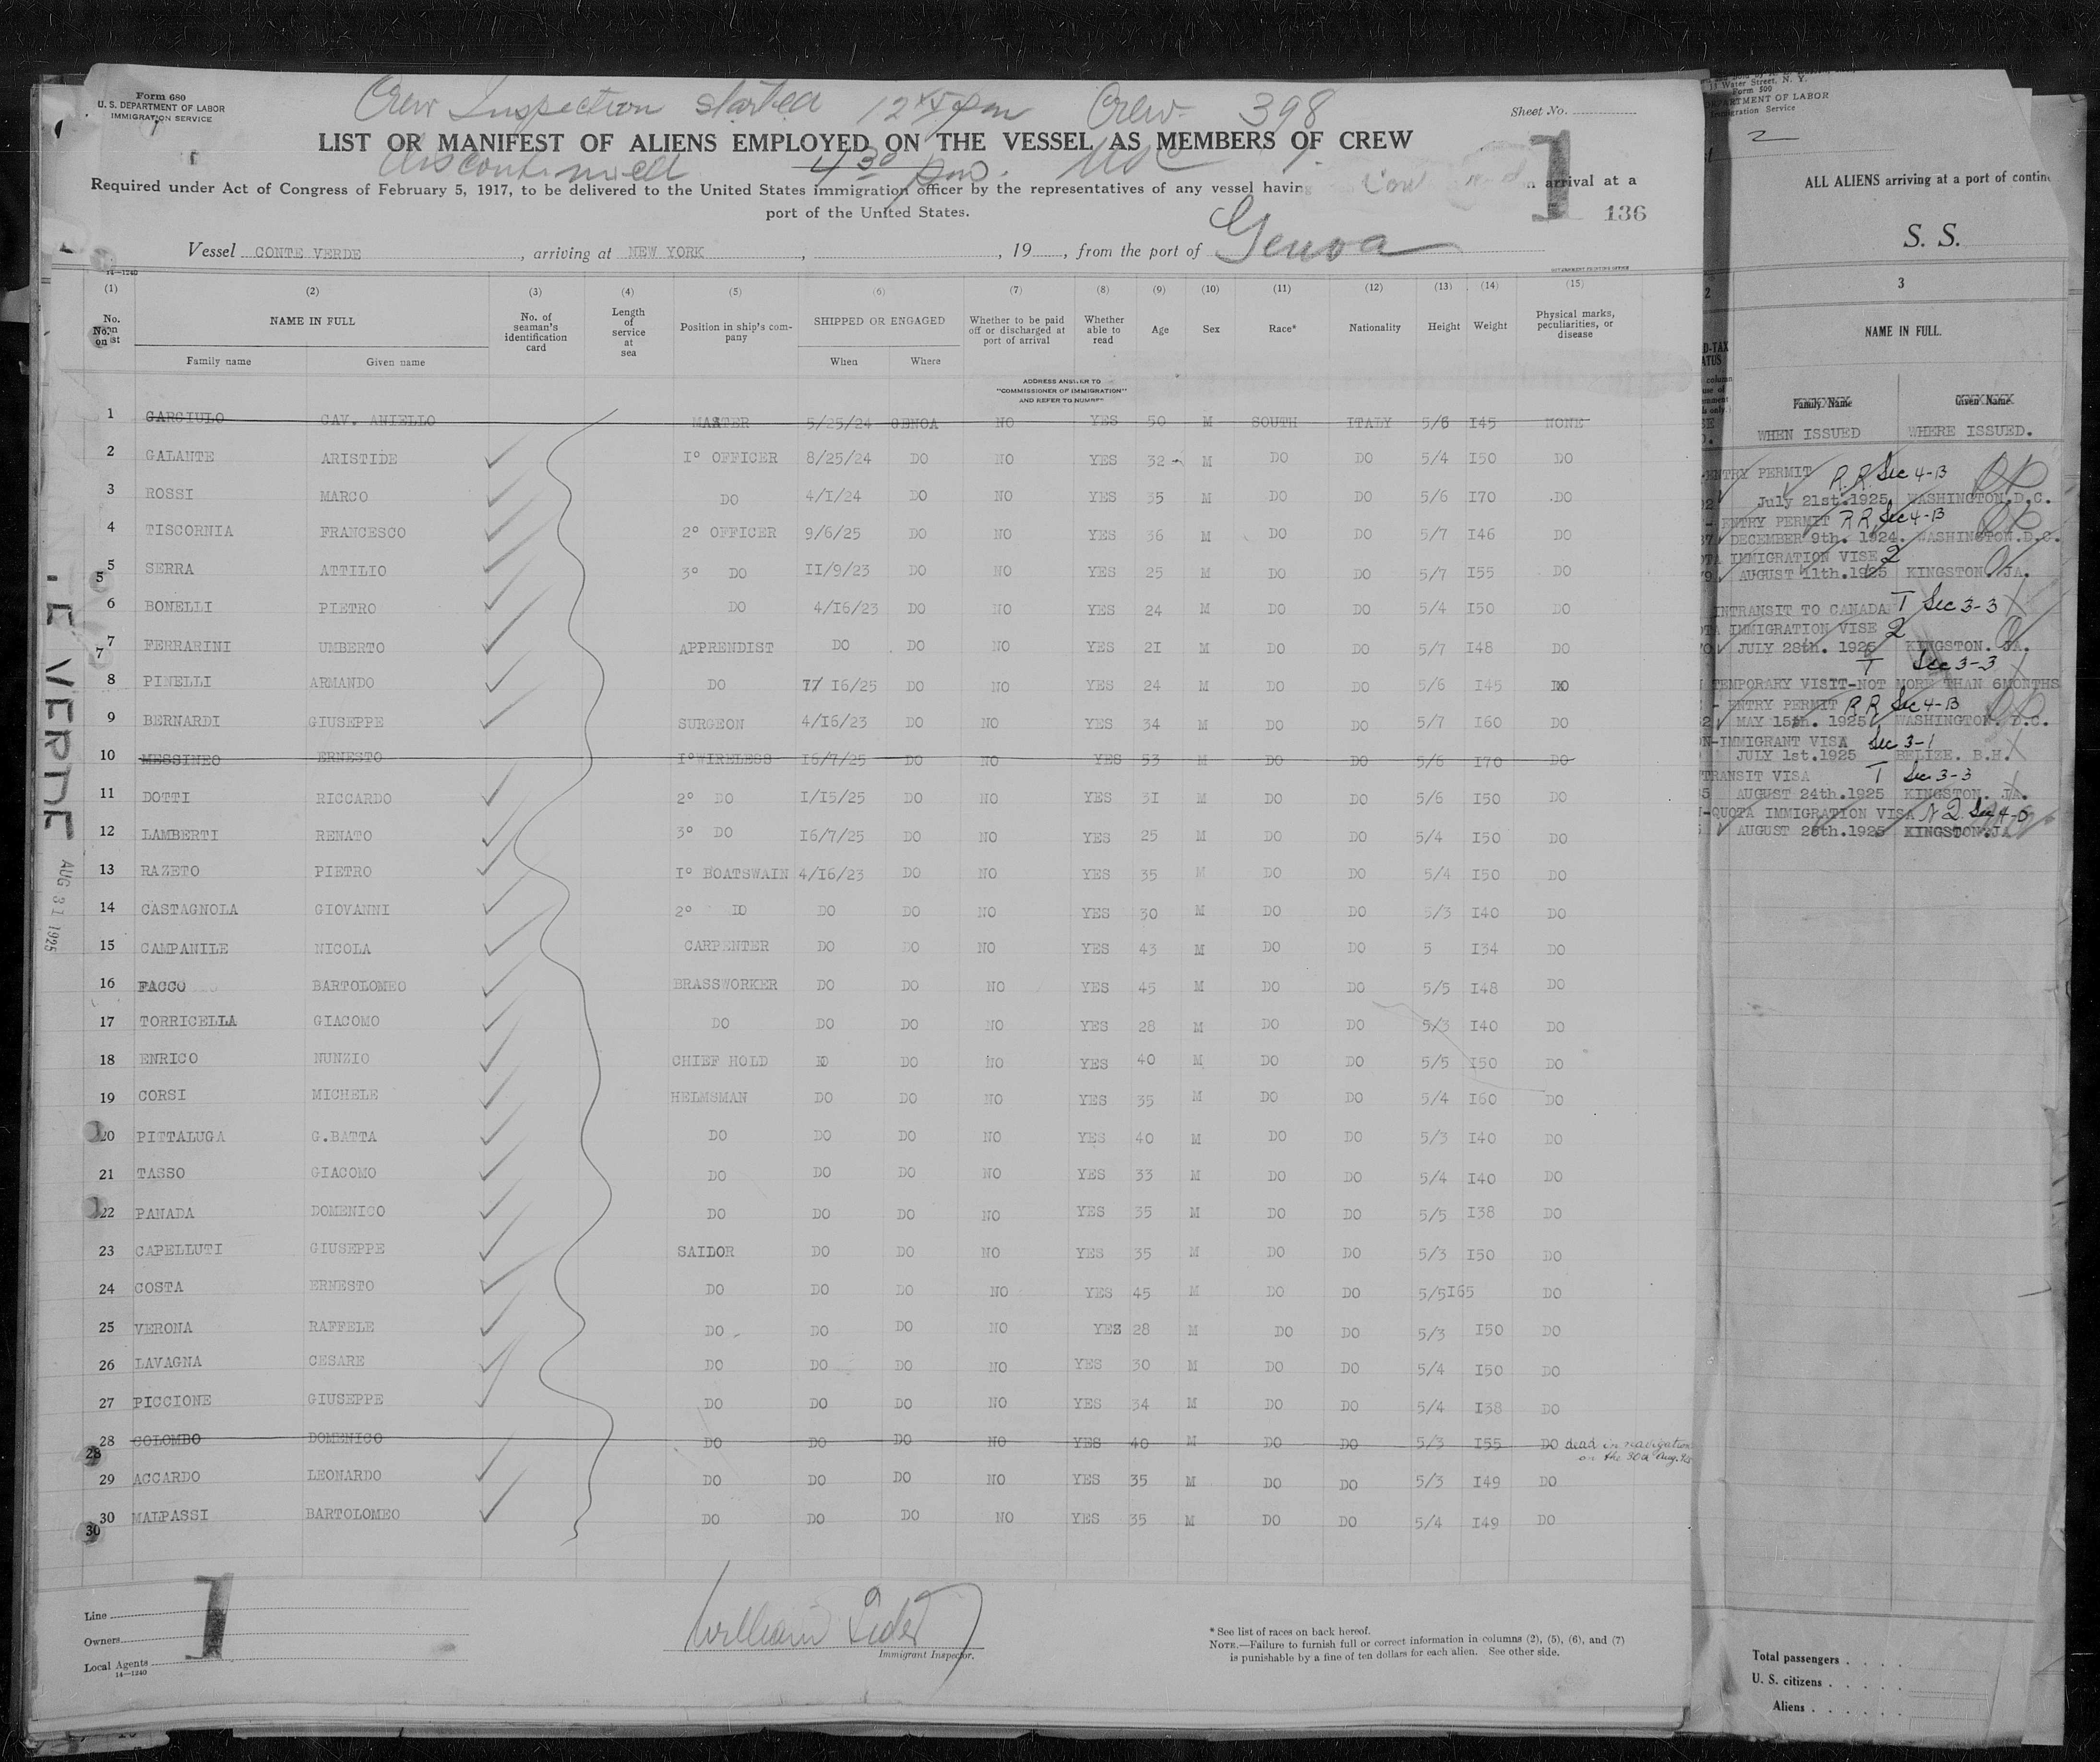 Form 680
U. S. DEPARTMENT OF LABOR
IMMIGRATION SERVICE
Crew Inspection started 12 45 pm Crew 398
Sheet No.
LIST OR MANIFEST OF ALIENS EMPLOYED ON THE VESSEL AS MEMBERS OF CREW
discontinued 4 30 pm.
1
Required under Act of Congress of February 5, 1917, to be delivered to the United States immigration officer by the representatives of any vessel having arrival at a
port of the United States.
136
Vessel CONTE VERDE, arriving at NEW YORK, 19, from the port of Genoa
14—1240
GOVERNMENT PRINTING OFFICE
(1) (2) (3) (4) (5) (6) (7) (8) (9) (10) (11) (12) (13) (14) (15)
No. on list
NAME IN FULL
Family name Given name
No. of seaman's identification card
Length of service at sea
Position in ship's company
SHIPPED OR ENGAGED
When Where
Whether to be paid off or discharged at port of arrival
Whether able to read
Age
Sex
Race*
Nationality
Height
Weight
Physical marks, peculiarities, or disease
ADDRESS ANSWER TO
"COMMISSIONER OF IMMIGRATION"
AND REFER TO NUMBER
1 GARGIULO CAV. ANIELLO MASTER 5/25/24 GENOA NO YES 50 M SOUTH ITALY 5/6 I45 NONE
2 GALANTE ARISTIDE I° OFFICER 8/25/24 DO NO YES 32 M DO DO 5/4 I50 DO
3 ROSSI MARCO DO 4/I/24 DO NO YES 35 M DO DO 5/6 I70 DO
4 TISCORNIA FRANCESCO 2° OFFICER 9/6/25 DO NO YES 36 M DO DO 5/7 I46 DO
5 SERRA ATTILIO 3° DO II/9/23 DO NO YES 25 M DO DO 5/7 I55 DO
6 BONELLI PIETRO DO 4/I6/23 DO NO YES 24 M DO DO 5/4 I50 DO
7 FERRARINI UMBERTO APPRENDIST DO DO NO YES 2I M DO DO 5/7 I48 DO
8 PINELLI ARMANDO DO 7/ I6/25 DO NO YES 24 M DO DO 5/6 I45 DO
9 BERNARDI GIUSEPPE SURGEON 4/I6/23 DO NO YES 34 M DO DO 5/7 I60 DO
10 MESSINEO ERNESTO I°WIRELESS I6/7/25 DO NO YES 53 M DO DO 5/6 I70 DO
11 DOTTI RICCARDO 2° DO I/I5/25 DO NO YES 3I M DO DO 5/6 I50 DO
12 LAMBERTI RENATO 3° DO I6/7/25 DO NO YES 25 M DO DO 5/4 I50 DO
13 RAZETO PIETRO I° BOATSWAIN 4/I6/23 DO NO YES 35 M DO DO 5/4 I50 DO
14 CASTAGNOLA GIOVANNI 2° DO DO DO NO YES 30 M DO DO 5/3 I40 DO
15 CAMPANILE NICOLA CARPENTER DO DO NO YES 43 M DO DO 5 I34 DO
16 FACCO BARTOLOMEO BRASSWORKER DO DO NO YES 45 M DO DO 5/5 I48 DO
17 TORRICELLA GIACOMO DO DO DO NO YES 28 M DO DO 5/3 I40 DO
18 ENRICO NUNZIO CHIEF HOLD DO DO NO YES 40 M DO DO 5/5 I50 DO
19 CORSI MICHELE HELMSMAN DO DO NO YES 35 M DO DO 5/4 I60 DO
20 PITTALUGA G.BATTA DO DO DO NO YES 40 M DO DO 5/3 I40 DO
21 TASSO GIACOMO DO DO DO NO YES 33 M DO DO 5/4 I40 DO
22 PANADA DOMENICO DO DO DO NO YES 35 M DO DO 5/5 I38 DO
23 CAPELLUTI GIUSEPPE SAILOR DO DO NO YES 35 M DO DO 5/3 I50 DO
24 COSTA ERNESTO DO DO DO NO YES 45 M DO DO 5/5 I65 DO
25 VERONA RAFFELE DO DO DO NO YES 28 M DO DO 5/3 I50 DO
26 LAVAGNA CESARE DO DO DO NO YES 30 M DO DO 5/4 I50 DO
27 PICCIONE GIUSEPPE DO DO DO NO YES 34 M DO DO 5/4 I38 DO
28 COLOMBO DOMENICO DO DO DO NO YES 40 M DO DO 5/3 I55 DO dead in navigation
on the 30th Aug.
29 ACCARDO LEONARDO DO DO DO NO YES 35 M DO DO 5/3 I49 DO
30 MALPASSI BARTOLOMEO DO DO DO NO YES 35 M DO DO 5/4 I49 DO
E VERDE AUG 31 1925
Line
Owners
Local Agents
14—1240
1
Immigrant Inspector.
* See list of races on back hereof.
NOTE.—Failure to furnish full or correct information in columns (2), (5), (6), and (7)
is punishable by a fine of ten dollars for each alien. See other side.
Water Street, N. Y.
Form 500
DEPARTMENT OF LABOR
Immigration Service
2
ALL ALIENS arriving at a port of
S. S.
2 3
NAME IN FULL.
Family Name Given Name
WHEN ISSUED WHERE ISSUED.
ENTRY PERMIT R.R. Sec 4-B
July 21st.1925 WASHINGTON.D.C.
ENTRY PERMIT R R Sec 4-B
DECEMBER 9th. 1924. WASHINGTON.D.C.
IMMIGRATION VISE 2
AUGUST 11th.1925 KINGSTON. JA.
INTRANSIT TO CANADA T Sec 3-3
IMMIGRATION VISE 2
JULY 28th. 1925 KINGSTON. JA.
T Sec 3-3
TEMPORARY VISIT-NOT MORE THAN 6MONTHS
- ENTRY PERMIT R R Sec 4-B
MAY 15th. 1925 WASHINGTON. D.C.
N-IMMIGRANT VISA Sec 3-1
JULY 1st.1925 BELIZE. B.H.
TRANSIT VISA T Sec 3-3
AUGUST 24th.1925 KINGSTON. JA.
-QUOTA IMMIGRATION VISA N Q Sec 4-D
AUGUST 28th.1925 KINGSTON.JA
Total passengers
U. S. citizens
Aliens